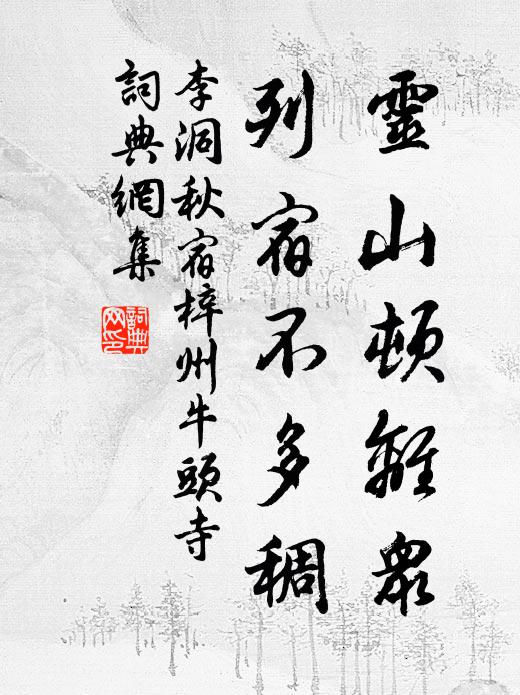 靈山頓離衆
列宿不多稠
李洞秋宿梓州牛頭寺
詞典網集
詞典网印